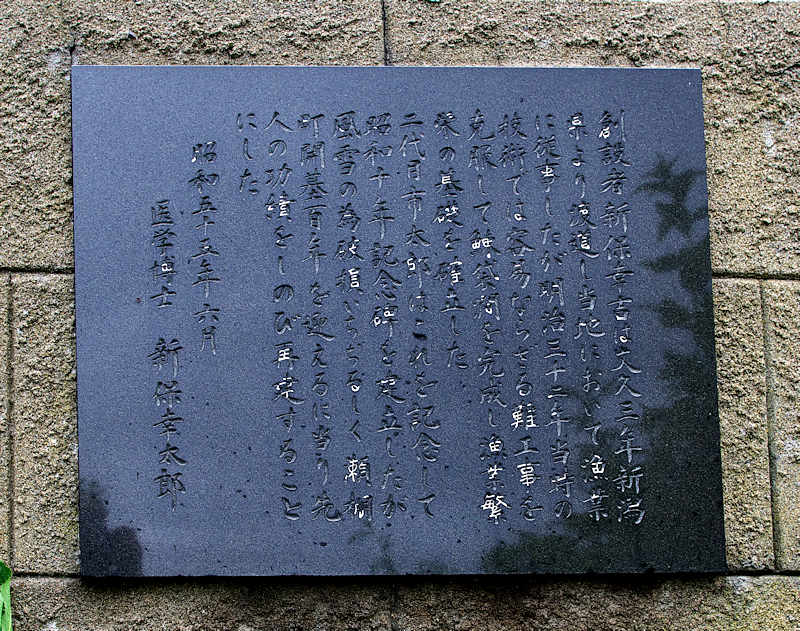 創設者新保幸吉は文久三年新潟
県より渡道し当地において漁業
に従事したが明治三十二年当時の
技術では容易ならざる難工事を
克服して鮭袋澗を完成し漁業繁
栄の基礎を確立した
二代目市太郎はこれを記念して
昭和十年記念碑を建立したが
風雪の為破損いちぢるしく
町開基百年を迎えるに当り先
人の功績をしのび再建すること
にした
昭和五十五年六月
医学博士 新保幸太郎